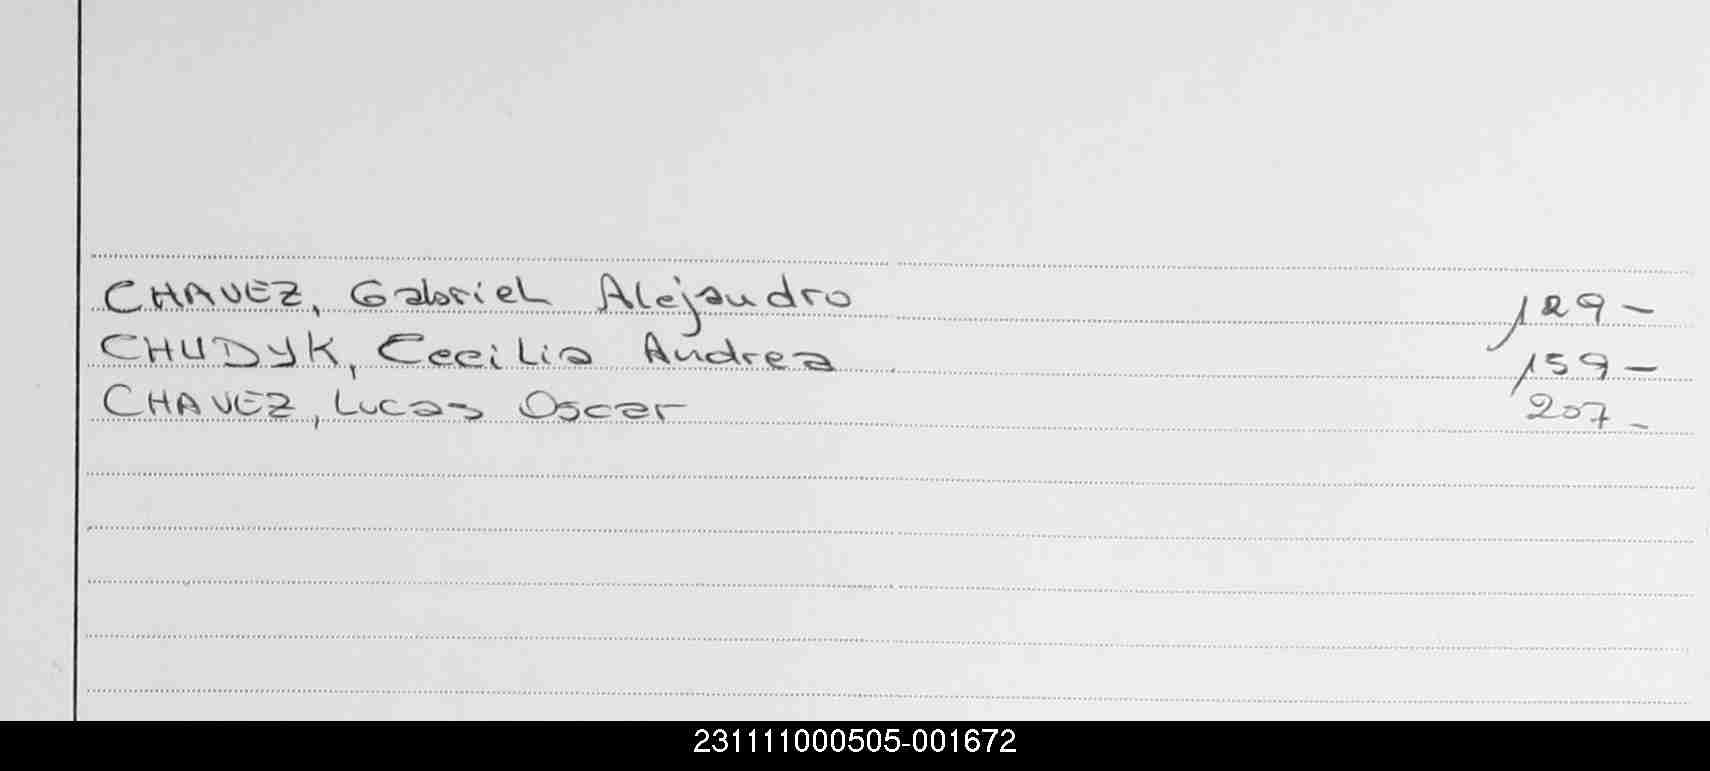 CHAVEZ, Gabriel Alejandro 129-
CHUDYK, Cecilia Andrea 159-
CHAVEZ, Lucas Oscar 207-
231111000505-001672